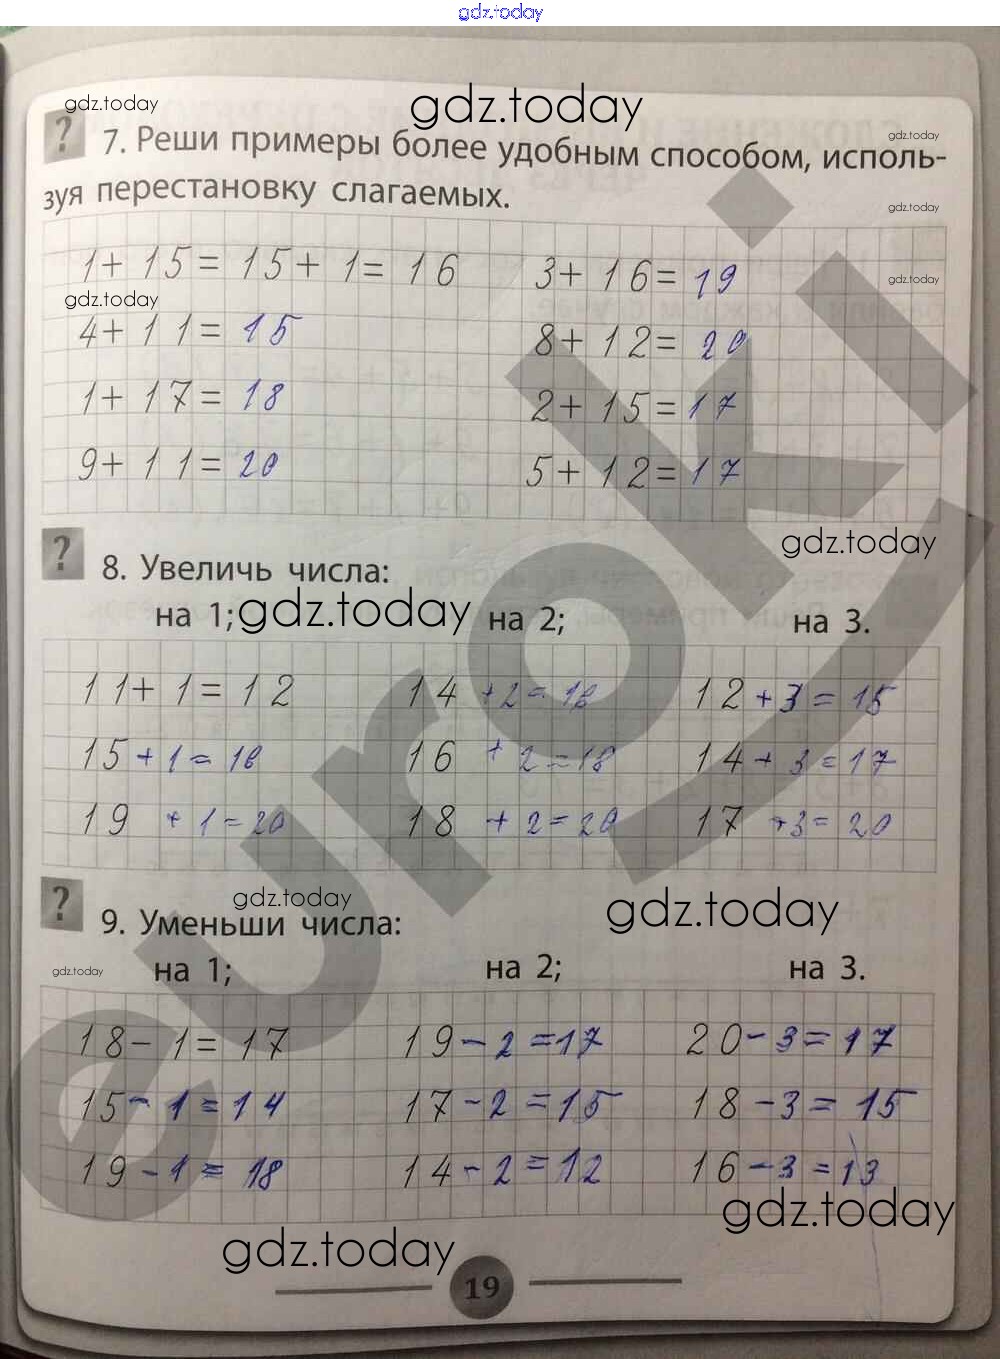 gdz.today
gdz.today
gdz.today
? 7. Реши примеры более удобным способом, исполь-
gdz.today
зуя перестановку слагаемых.
gdz.today
1+ 15= 15+ 1= 16
3+ 16= 19
gdz.today
gdz.today
4+ 11= 15
8+ 12= 20
1+ 17= 18
2+ 15= 17
9+ 11= 20
5+ 12= 17
gdz.today
? 8. Увеличь числа:
на 1; gdz.today на 2; на 3.
11+ 1= 12 14 +2= 16 12 +3= 15
15 +1= 16 16 +2=18 14 +3=17
19 +1=20 18 +2=20 17 +3= 20
gdz.today
gdz.today
? 9. Уменьши числа:
gdz.today
на 1; на 2; на 3.
18- 1= 17 19-2=17 20-3=17
15-1=14 17-2=15 18-3= 15
19-1= 18 14-2=12 16-3=13
gdz.today
gdz.today
19
euroki